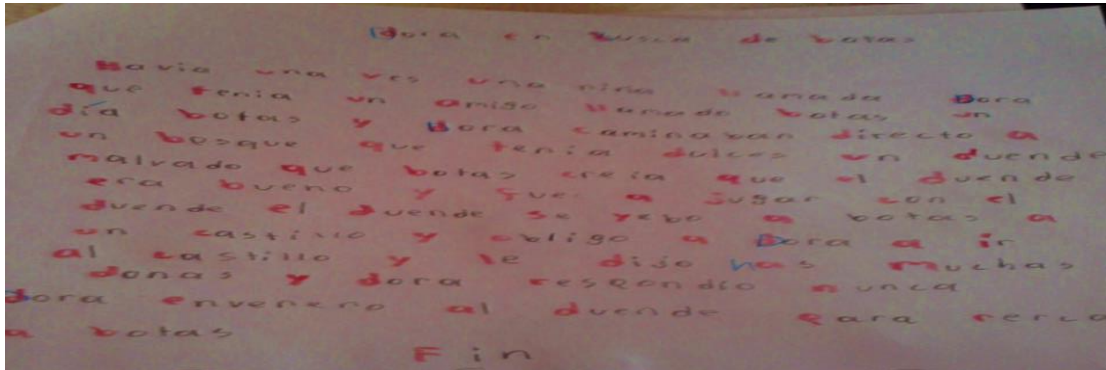 Dora en busca de botas
Havia una ves una niña llamada Dora
que tenia un amigo llamado botas un
día botas y Dora caminavan directo a
un bosque que tenia dulces un duende
malvado que botas creia que el duende
era bueno y fue a jugar con el
duende el duende se yebo a botas a
un castillo y obligo a Dora a ir
al castillo y le dijo has muchas
donas y dora respondio nunca
Dora enveneno al duende para
a botas
Fin